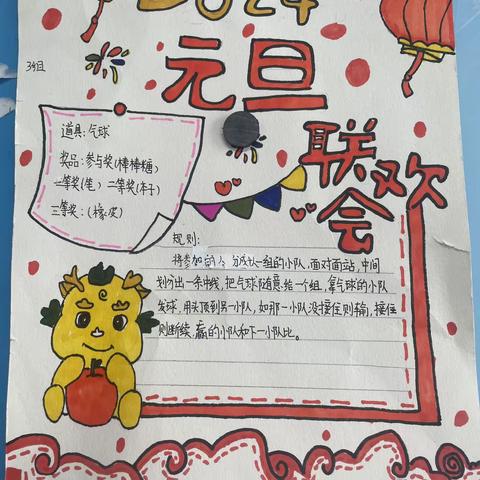 2024
元旦
联欢会
道具：气球
奖品：参与奖（棒棒糖）
一等奖（笔） 二等奖（本子）
三等奖：（橡皮）
规则：
分成以一组的小队，面对面站，中间
划分出一条中线，把气球随意给一个组，拿气球的小队
发球，用头顶到另一小队，如那一小队没接住则输，接住
则继续，赢的小队和下一小队比。